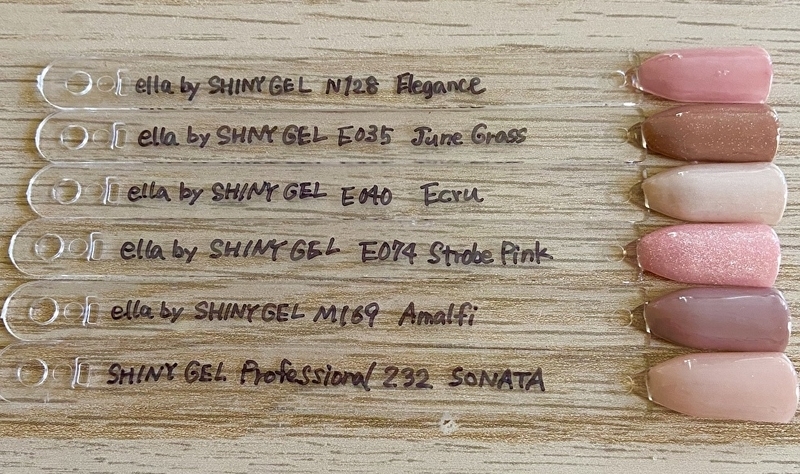 ella by SHINY GEL N128 Elegance
ella by SHINY GEL E035 June Grass
ella by SHINY GEL E040 Ecru
ella by SHINY GEL E074 Strobe Pink
ella by SHINY GEL M169 Amalfi
SHINY GEL Professional 232 SONATA